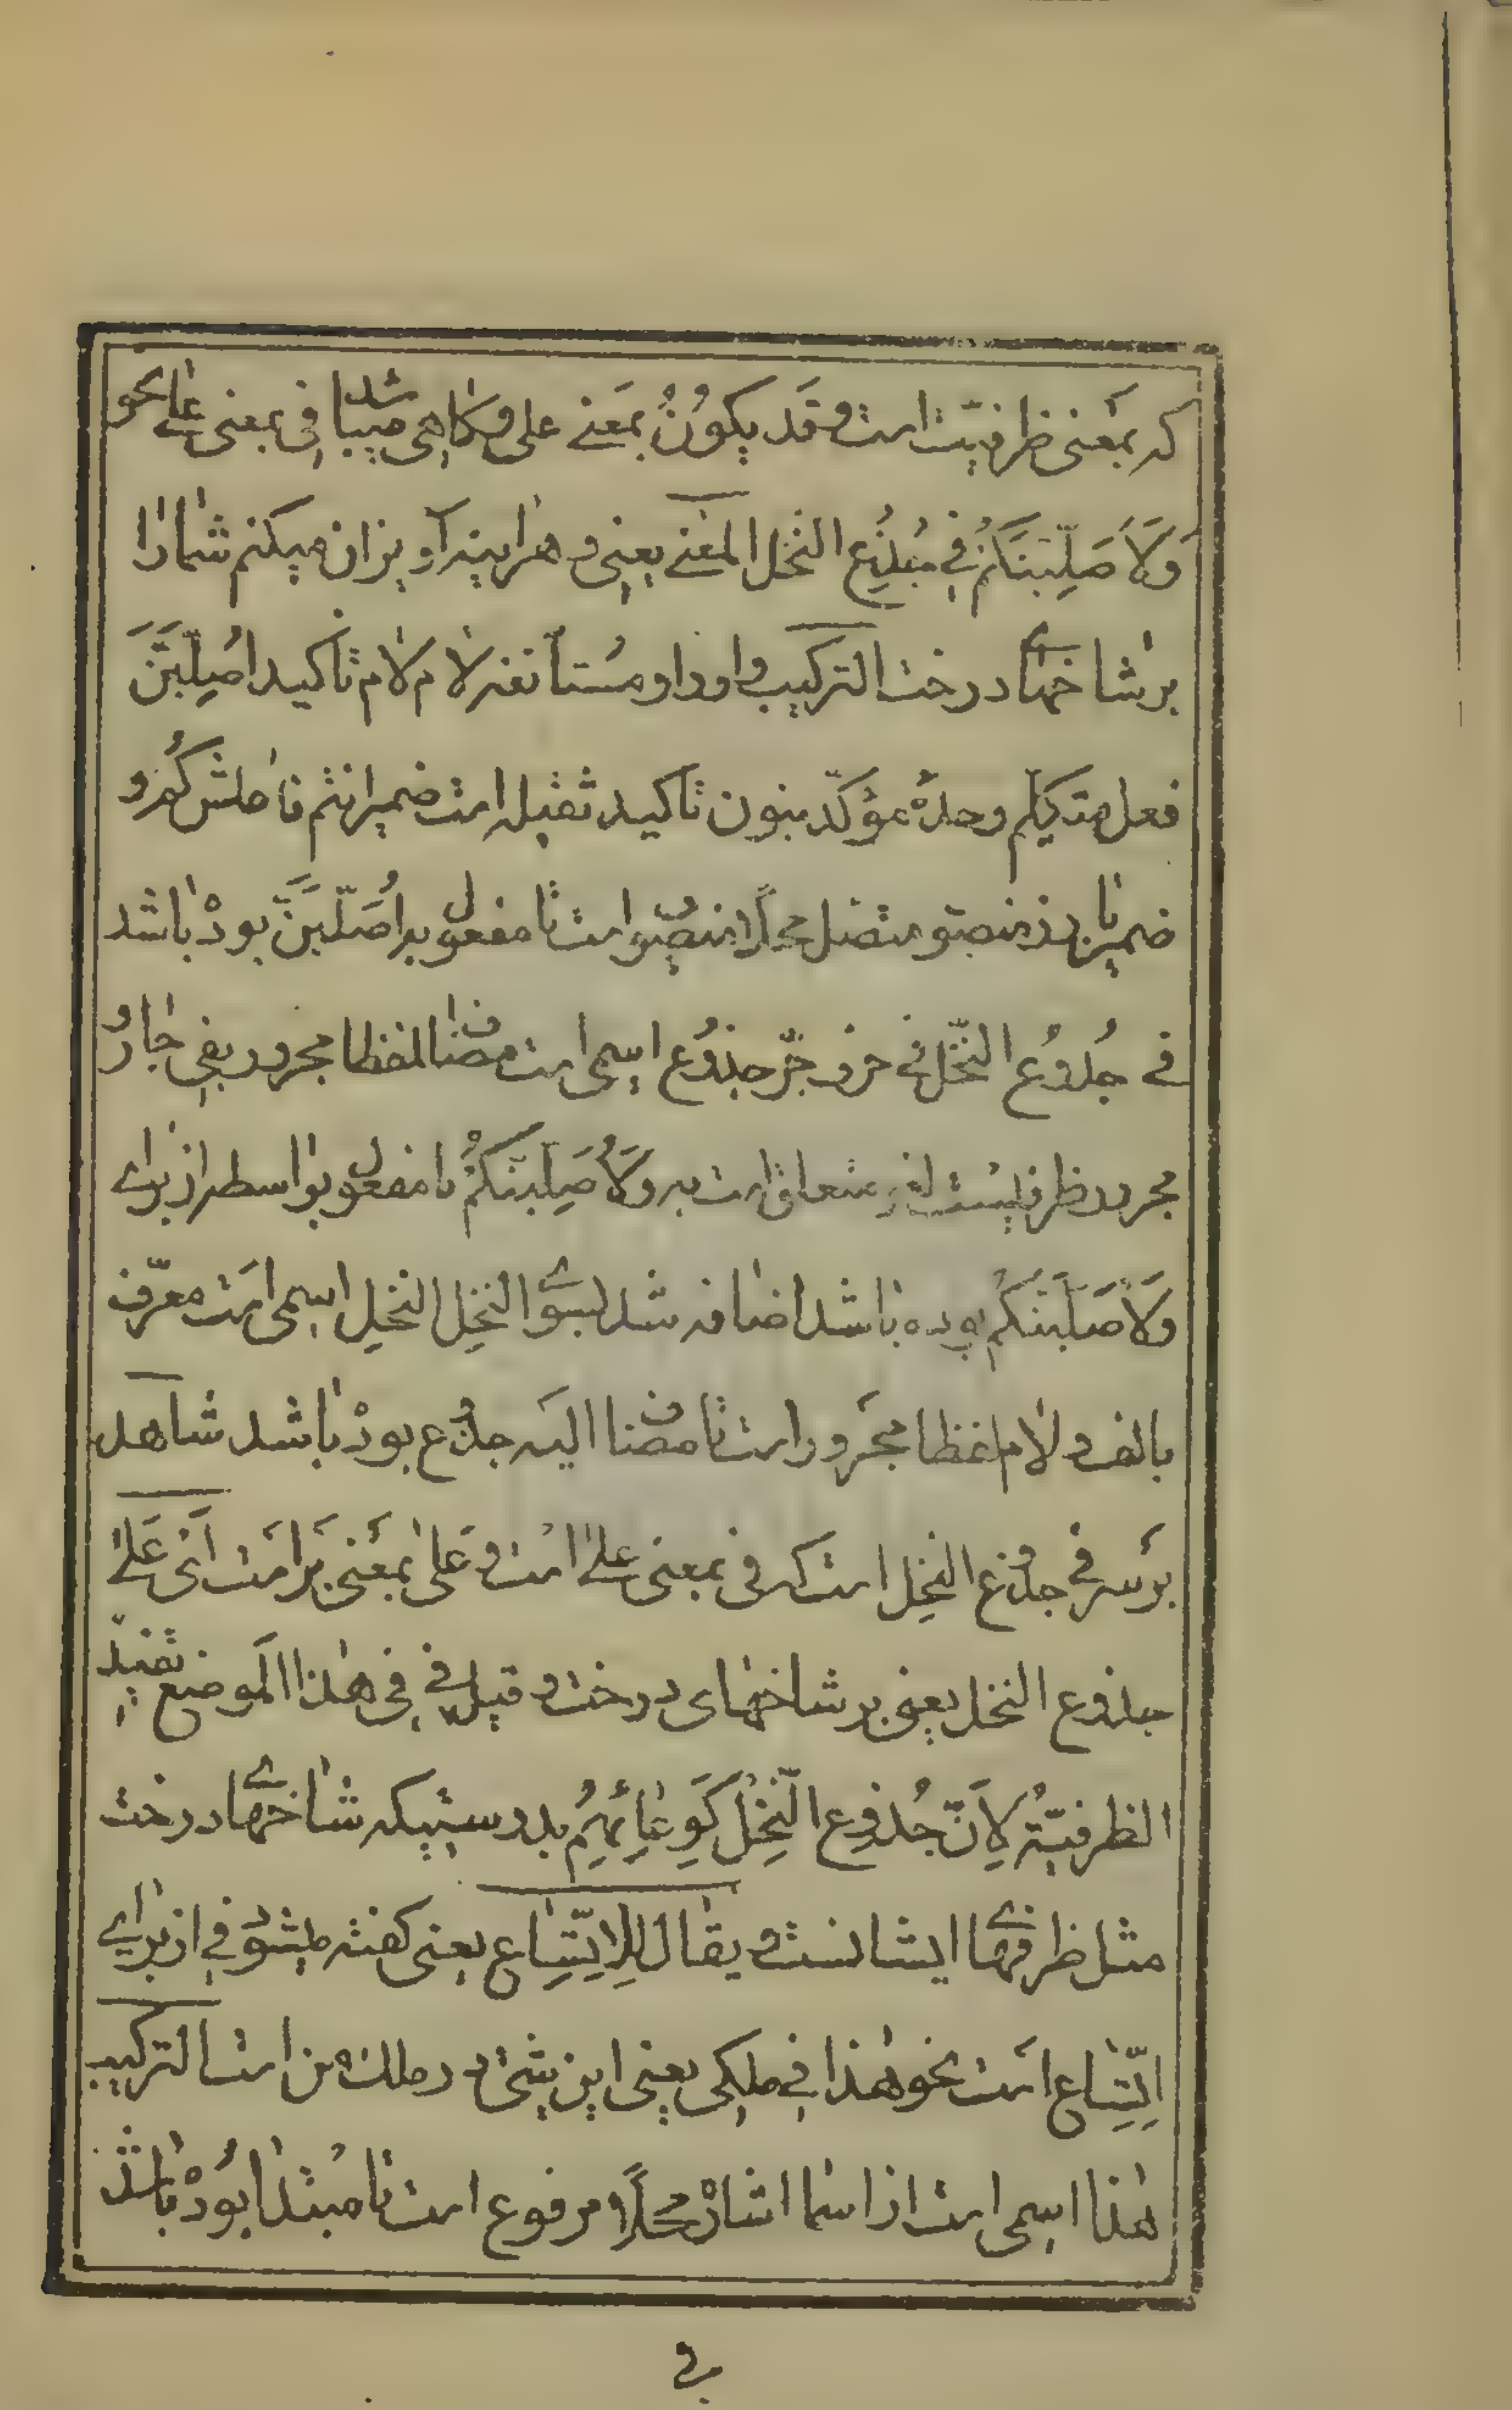 که بمعنی ظرفیّت است وقَد یکُونُ بمَعنے علی وکاهی میباشد فی بمعنی علی نحو
وَلَاُصَلِّبَنَّکُمْ فِی جُذُوعِ النَّخْلِ المَعنے یعنی وهراینه آویزان میکنم شمارا
برشاخهای درخت الترکیب واو واو مستأنفه لام لام تاکید اُصَلِّبَنَّ
فعل متکلم وحدهٔ مؤکّد بنون تاکید ثقیله است ضمیر انتم فاعلش کُمْ و
ضمیر بارز منصوب متصل محلاً منصوب است تا مفعول به اُصَلِّبَنَّ بودهٔ باشد
فے جُذُوعِ النَّخْلِ فے حرف جرّ جذُوع اسمی است مضاف لفظا مجرور بفی جارُّ
مجرور ظرفیست لغو متعلق است به وَلَاُصَلِّبَنَّکُمْ تا مفعول بواسطه از برای
وَلَاُصَلِّبَنَّکُمْ بوده باشد اضافه شد بسوی النخلِ النخلِ اسمی است معرّف
بالف ولام لفظا مجرور است تا مضاف الیه جذوع بودهٔ باشد شاهد
برسر فی جذوع النخلِ است که فی بمعنی علیٰ است و عَلیٰ بمعنی بَر است اَی عَلیٰ
جذوع النخل یعنی برشاخهای درخت وقیل فی فی هٰذا المَوضع تفیدُ
الظرفیّة لِاَنَّ جُذوع النَّخلِ کَوِعائِهِم بدرستیکه شاخهای درخت
مثل ظرفهای ایشانست ویقال لِلاِتّساع یعنی کفته میشود فی از برای
اِتّساع است نحو هٰذا فی ملکی یعنی این شئ در ملک من است الترکیب
هٰذا اسمی است از اسما اشارهٔ محلاً مرفوع است تا مبتدا بُودهٔ باشد